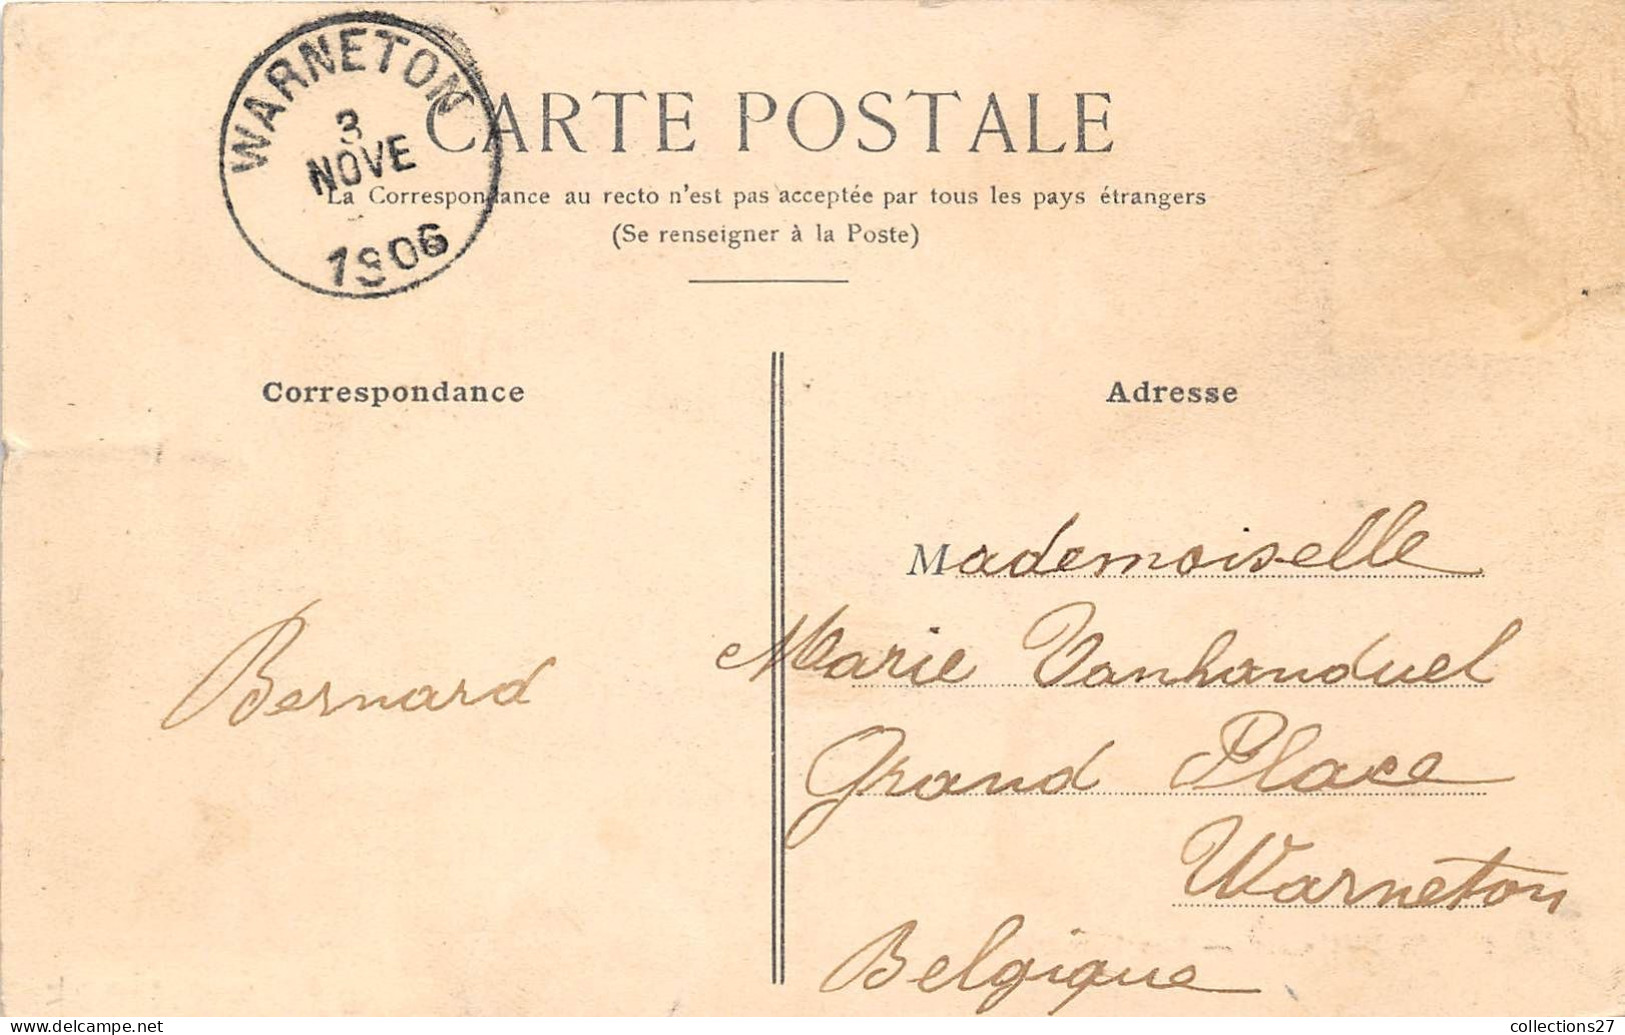 WARNETON
3
NOVE
1906
CARTE POSTALE
La Correspondance au recto n'est pas acceptée par tous les pays étrangers
(Se renseigner à la Poste)
Correspondance
Adresse
Mademoiselle
Marie Vanhanduel
Grand Place
Warneton
Belgique
Bernard
delcampe.net
collections27